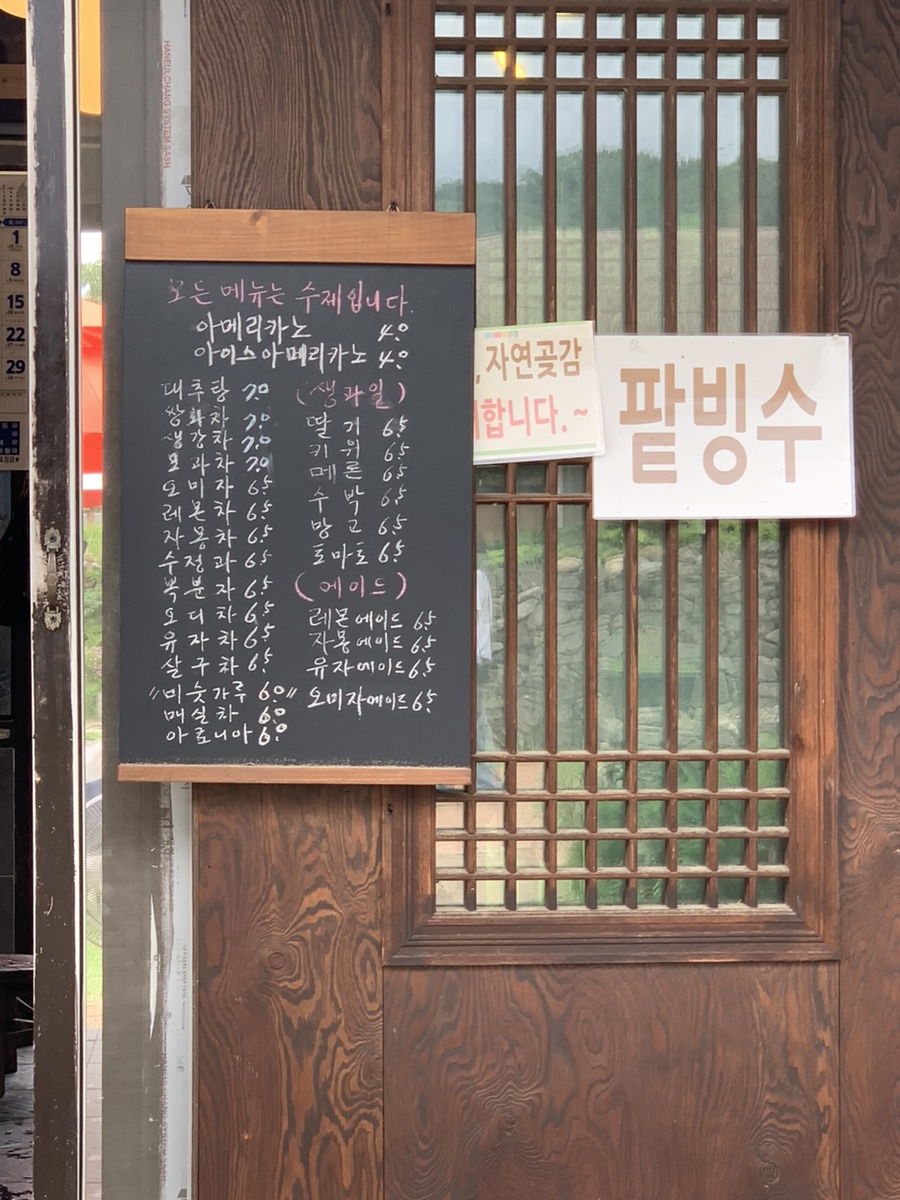 HANEULCHANG SYSTEM SASH
1
8
15
22
29
모든 메뉴는 수제입니다.
아메리카노 4.0
아이스아메리카노 4.0
대추탕 7.0
쌍화차 7.0
생강차 7.0
모과차 7.0
오미자 6.5
레몬차 6.5
자몽차 6.5
수정과 6.5
뽁분자 6.5
오디차 6.5
유자차 6.5
살구차 6.5
"미숫가루 6.0"
매실차 6.0
아로니아 6.0
(생과일)
딸기 6.5
키위 6.5
메론 6.5
수박 6.5
망고 6.5
토마토 6.5
(에이드)
레몬에이드 6.5
자몽에이드 6.5
유자에이드 6.5
오미자에이드 6.5
, 자연곶감
합니다. ~
팥빙수